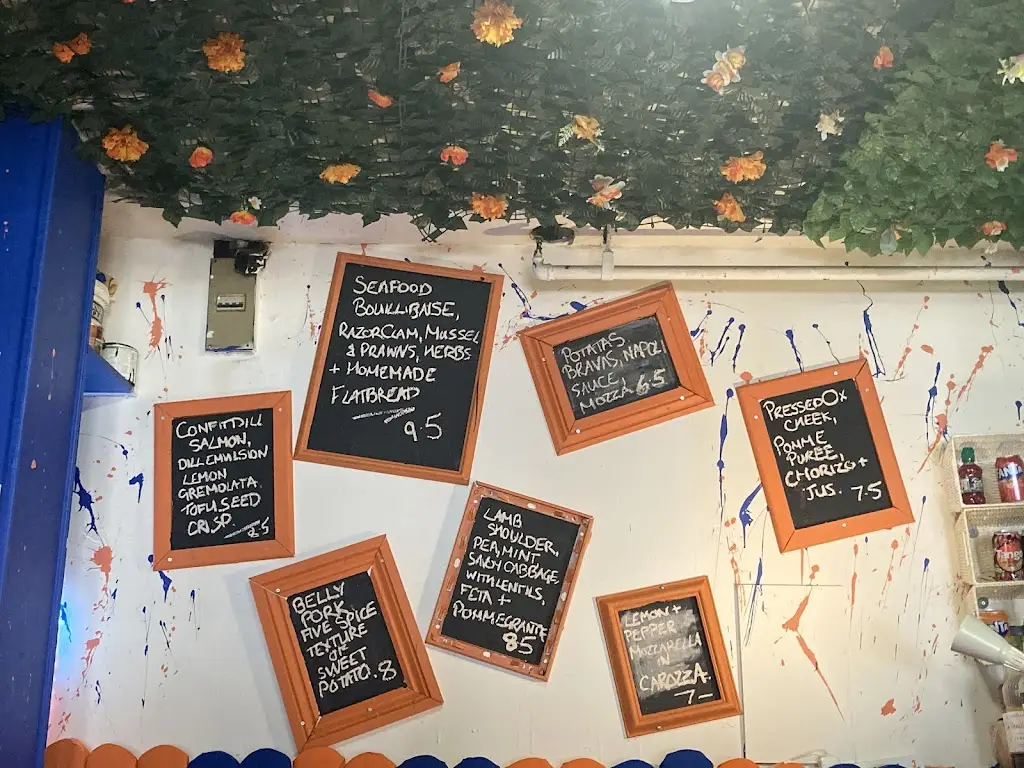 SEAFOOD
BOUILLIBAISE,
RAZORCLAM, MUSSEL
& PRAWNS, HERBS
+ HOMEMADE
FLATBREAD
9.5
POTATAS
BRAVAS, NAPOLI
SAUCE,
MOZZA 6.5
PRESSED OX
CHEEK,
POMME
PURÉE,
CHORIZO +
JUS. 7.5
CONFIT DILL
SALMON,
DILL EMULSION
LEMON
GREMOLATA.
TOFU, SEED
CRISP.
8.5
LAMB
SHOULDER,
PEA, MINT
SAVOY CABBAGE,
WITH LENTILS,
FETA +
POMMEGRANTE
8.5
BELLY
PORK
FIVE SPICE
TEXTURE
OF
SWEET
POTATO. 8
LEMON +
PEPPER
MOZZARELLA
IN
CAROZZA.
7-
Tango